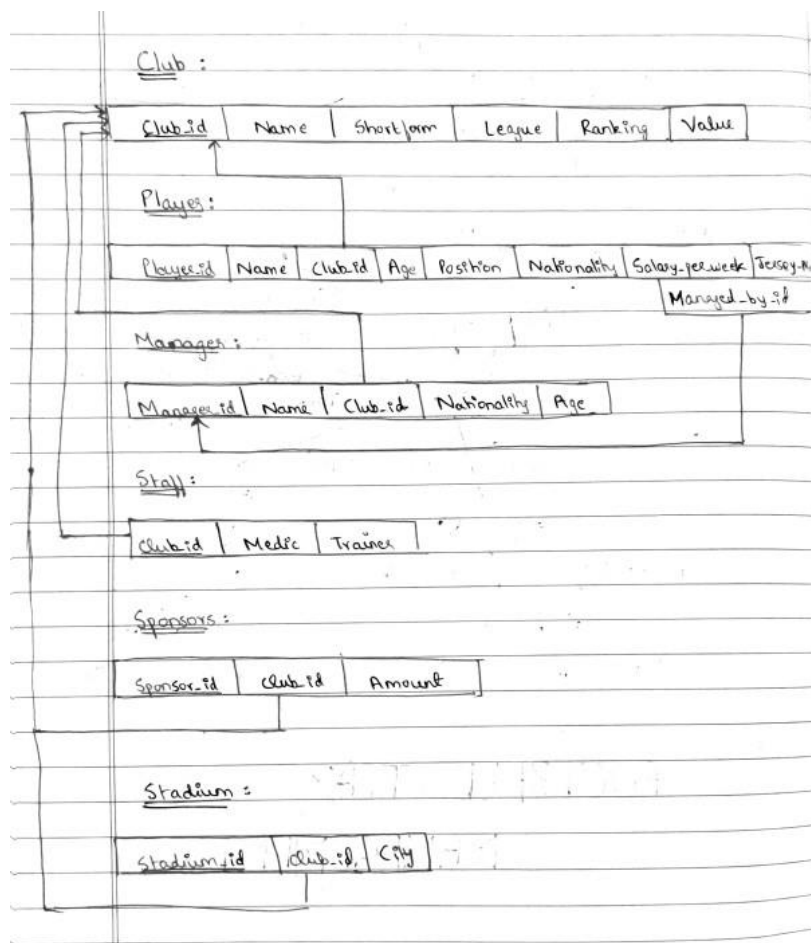 Club :
Club_id Name Shortform League Ranking Value
Player :
Player_id Name Club_id Age Position Nationality Salary_per_week Jersey
Managed_by_id
Manager :
Manager_id Name Club_id Nationality Age
Staff :
Club_id Medic Trainer
Sponsors :
Sponsor_id Club_id Amount
Stadium :
Stadium_id Club_id City